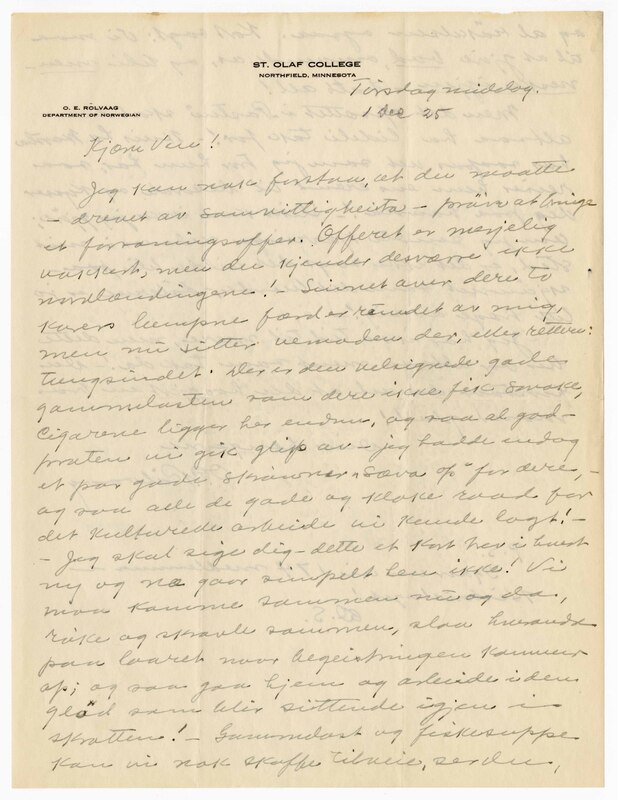 ST. OLAF COLLEGE
NORTHFIELD, MINNESOTA
Torsdag middag.
1 dec 25
O. E. RÖLVAAG
DEPARTMENT OF NORWEGIAN
Kjære Ven!
Jeg kan nok forstaa, at du maatte
– drevet av samvittigheita – prøve at bringe
et forsoningsoffer. Offeret er
vakkert, men du kjender desværre ikke
nordlændingene! – Sinnet over dere to
karers færd er rundet av mig,
men nu sitter vemoden der, eller rettere:
tungsindet. Der er den velsignede gode
gammelosten som dere ikke fik smake,
Cigarene ligger her endnu, og saa al god-
praten vi gik glip av – jeg hadde endog
et par gode skrøner for dere, –
og saa alle de gode og kloke raad for
det kulturelle arbeide vi kunde lagt! –
– Jeg skal sige dig – dette et kort brev i hvert
ny og næ gaar simpelt hen ikke! Vi
maa komme sammen nu og da,
røke og skravle sammen, slaa hverandre
paa laaret naar begeistringen kommer
op; og saa gaa hjem og arbeide i den
glöd som blir sittende igjen i
skrotten! – Gammelost og fiskesuppe
kan vi nok skaffe tilveie, ser du,